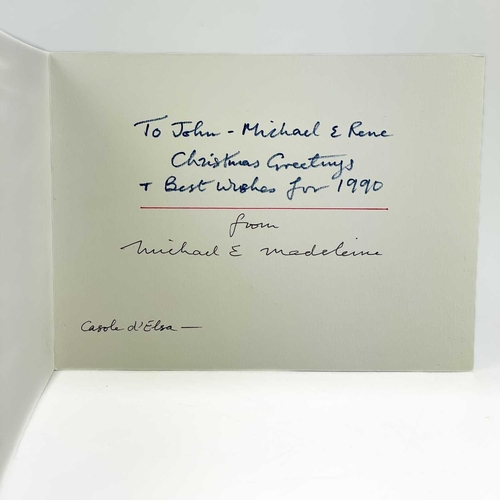 To John - Michael & Rene
Christmas Greetings
+ Best Wishes for 1990
from
Michael & Madeleine
Casole d'Elsa —